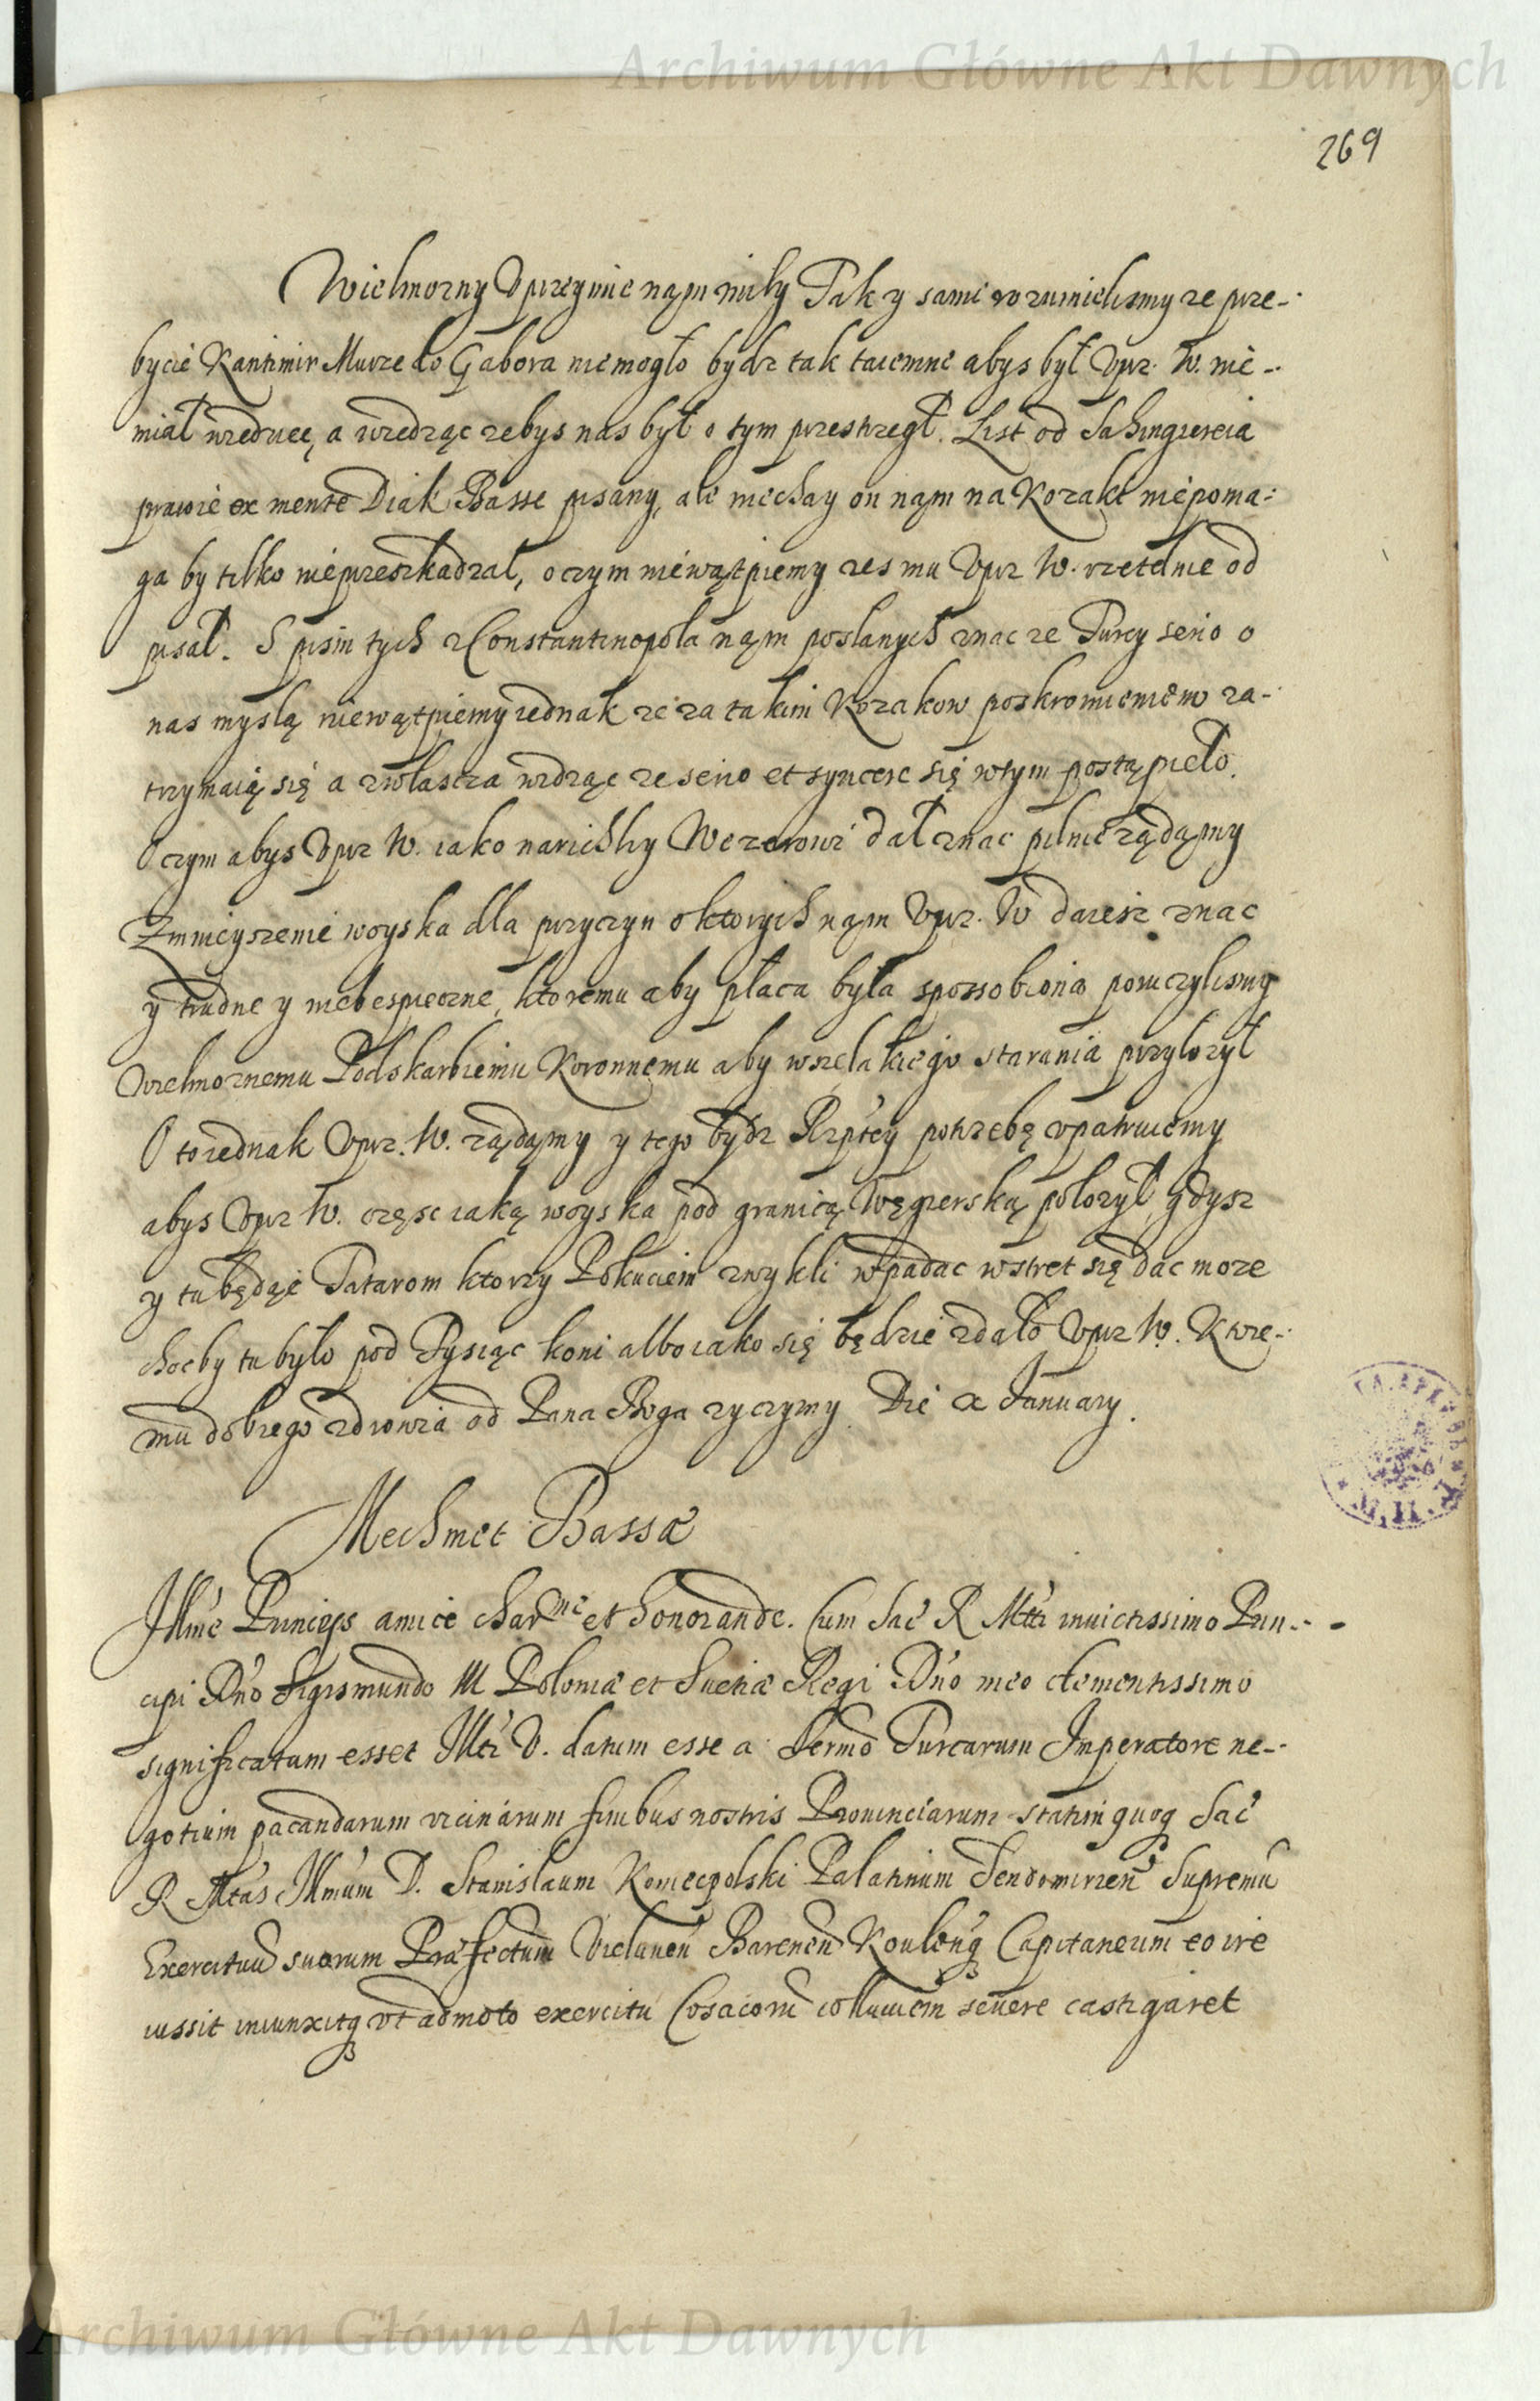 Archiwum Główne Akt Dawnych
269
Wielmozny Vprzeymie nąm miły Tak y sami rozumielismy ze prze-
bycie Kantimir Murze do Gabora niemogło bydz tak taiemne abys był Vpr. W. nie-
miał wiedziec, a wiedząc zebys nas był o tym przestrzegł. List od Sahingiereia
prawie ex mente Diak Basse pisany, ale niechay on nąm na Kozaki niepoma-
ga by tilko nieprzeszkadzał, o czym niewątpiemy zes mu Vpr W. rzetelnie od
pisał. S pism tych z Constantinopola nąm posłanych znac ze Turcy serio o
nas myslą niewątpiemy iednak ze za takim Kozakow poskromieniem za-
trzymaią się a zwłaszcza widząc ze serio et syncere się w tym postąpieło.
O czym abys Vpr W. iako narichly Wezerowi dał znac pilnie ządąmy
Zmnieyszenie woyska dla przyczyn o ktorych nąm Vpr. W daiesz znac
y trudne y niebespieczne, ktoremu aby płaca była sposobiona poruczylismy
Wielmoznemu Podskarbiemu Koronnemu aby wszelakiego starania przylozył
O to iednak Vpr. W. ządąmy y tego bydz Rzptey potrzebę vpatruiemy
abys Vpr W. częsc iaką woyska pod granicą Węgierską polozył, gdysz
y tu będąc Tatarom ktorzy Pokuciem zwykli wpadac wstret się dac moze
chocby tu było pod Tysiąc koni albo iako się będzie zdało Vpr W. Ktore-
mu dobrego zdrowia od Pana Boga zyczymy. Die x January.
Mechmet Bassæ
Illme Princeps amice charme et honorande. Cum Sac R Mtti inuictissimo Prin-
cipi Dno Sigismundo III Poloniæ et Suetiæ Regi Dno meo clementissimo
significatum esset Illti V. datum esse a Sermo Turcarum Imperatore ne-
gotium pacandarum vicinarum finibus nostris Prouinciarum statim quoq Sac
R Mtas Illmum D. Stanislaum Koniecpolski Palatinum Sendomirien Supremu
Exercituu suorum Præfectum Vieluneñ Bareneñ Koulenq Capitaneum eo ire
iussit iniunxitq vt admoto exercitu Cosacoru colluuiem seuere castigaret
Archiwum Główne Akt Dawnych